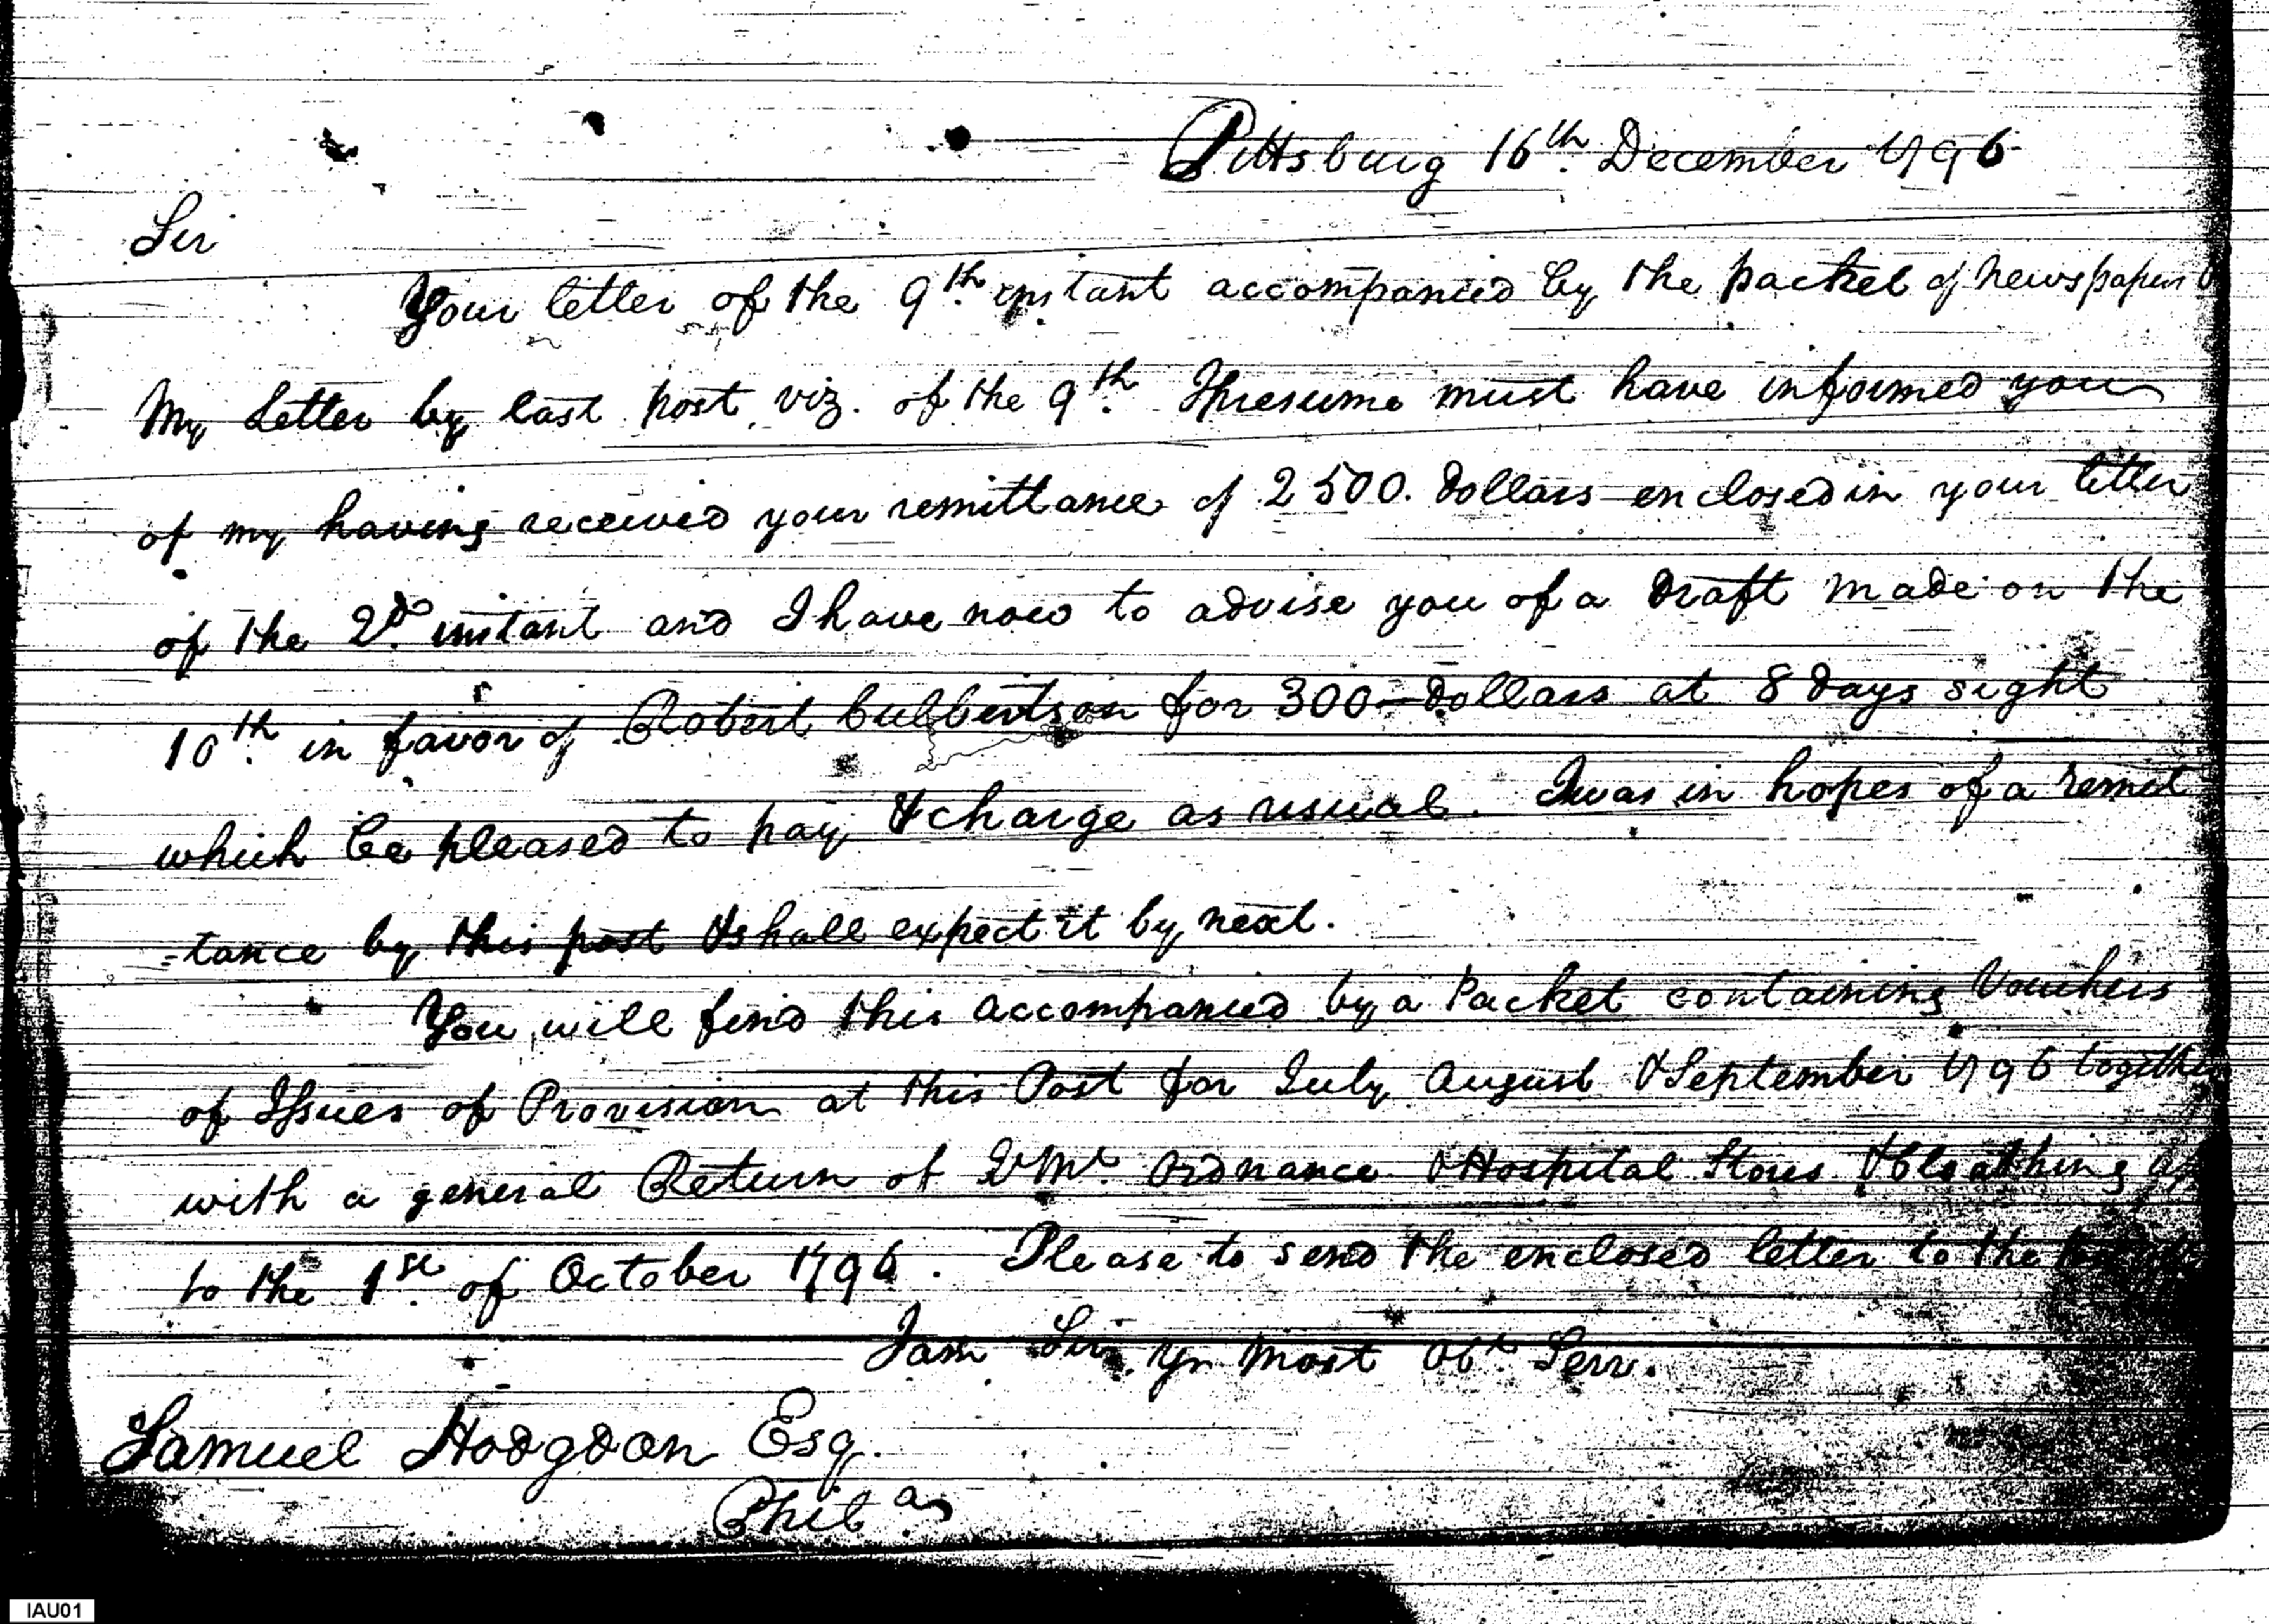 Pittsburg 16th. December 1796
Sir
Your letter of the 9th. instant accompanied by the packet of Newspapers
My Letter by last post, viz. of the 9th. I presume must have informed you
of my having received your remittance of 2500. Dollars enclosed in your letter
of the 2d. instant and I have now to advise you of a Draft made on the
10th. in favor of Robert Culbertson for 300 – Dollars at 8 Days sight
which be pleased to pay & charge as usual. I was in hopes of a remit
-tance by this post & shall expect it by next.
You will find this accompanied by a Packet containing Vouchers
of Issues of Provision at this Post for July August & September 1796 together
with a general Return of QMr. Ordnance & Hospital Stores & Cloathing
to the 1st. of October 1796. Please to send the enclosed letter to the
I am Sir Yr. most Obt. Serv.
Samuel Hodgdon Esq.
Phila.
IAU01